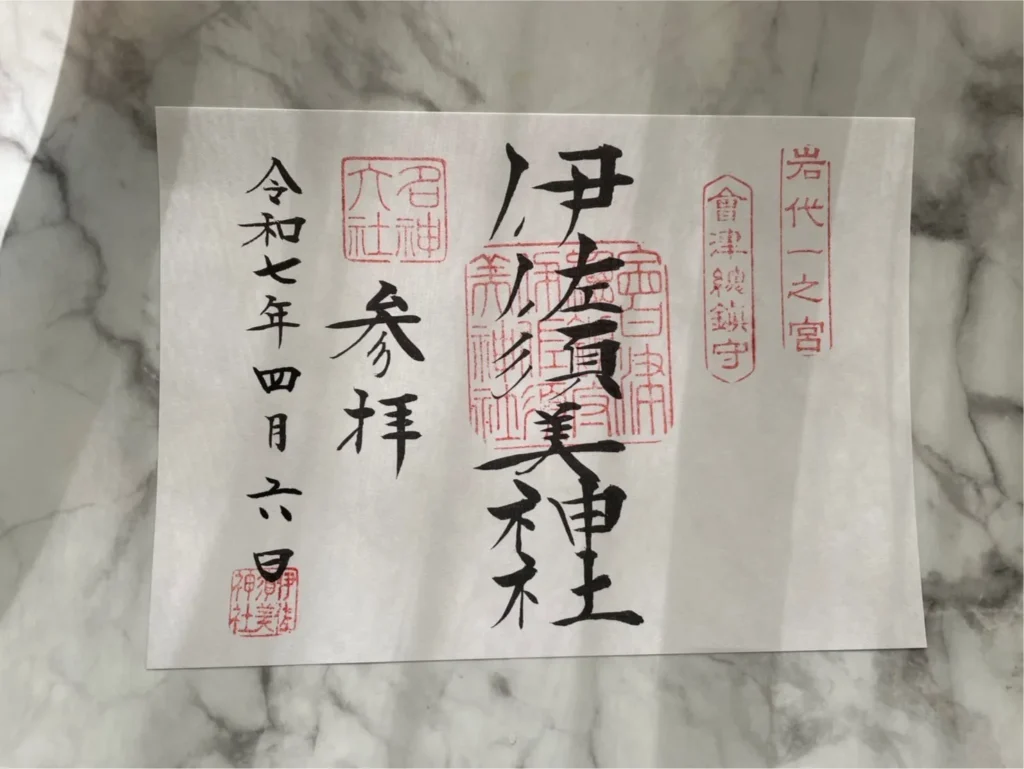 岩代一之宮
會津總鎮守
伊佐須美神社
名神
大社
参拝
令和七年四月六日
伊佐
須美
神社